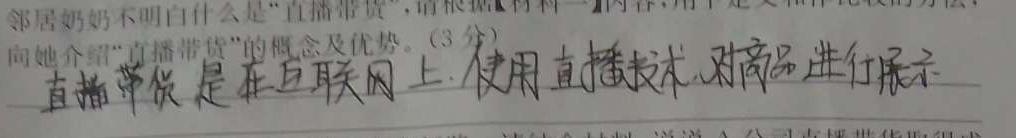 邻居奶奶不明白什么是“直播带货”，请根据【材料一】内容，用下定义和作比较的方法，
向她介绍“直播带货”的概念及优势。（3分）
直播带货是在互联网上.使用直播技术.对商品进行展示